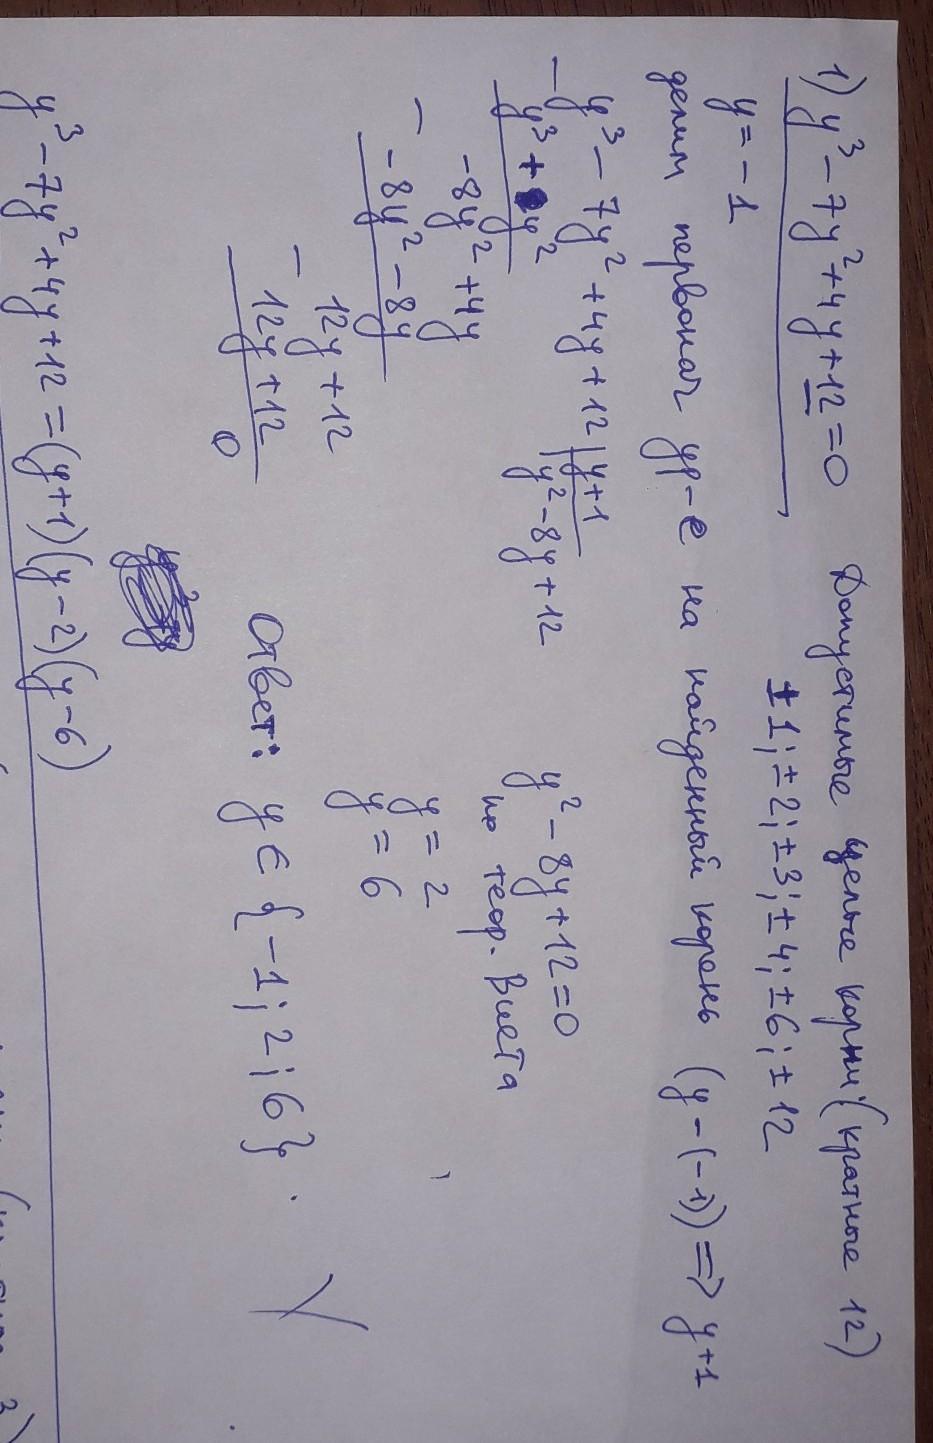 1) y³ - 7y² + 4y + 12 = 0 Допустимые целые корни (кратные 12)
± 1; ± 2; ± 3; ± 4; ± 6; ± 12
y = - 1
делим первонач ур-е на найденный корень (y - (-1)) => y+1
y³ - 7y² + 4y + 12 | y+1
y³ + y²
y² - 8y + 12
-8y² + 4y
-8y² - 8y
12y + 12
12y + 12
0
y² - 8y + 12 = 0
по теор. Виета
y = 2
y = 6
Ответ: y ∈ {-1; 2; 6}.
y³ - 7y² + 4y + 12 = (y+1)(y-2)(y-6)